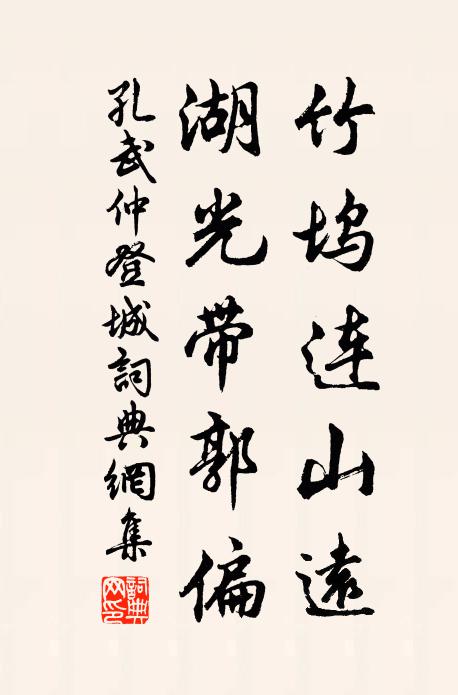 竹坞连山遠
湖光带郭偏
孔武仲登城詞典網集
詞典網印